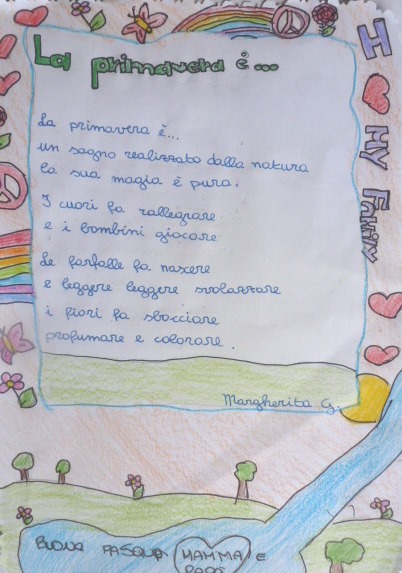 La primavera è...
La primavera è...
un sogno realizzato dalla natura
la sua magia è pura.
I cuori fa rallegrare
e i bambini giocare
Le farfalle fa nascere
e leggere leggere svolazzare
i fiori fa sbocciare
profumare e colorare.
Margherita G.
I ❤ MY FAMILY
BUONA PASQUA MAMMA E
PAPÀ